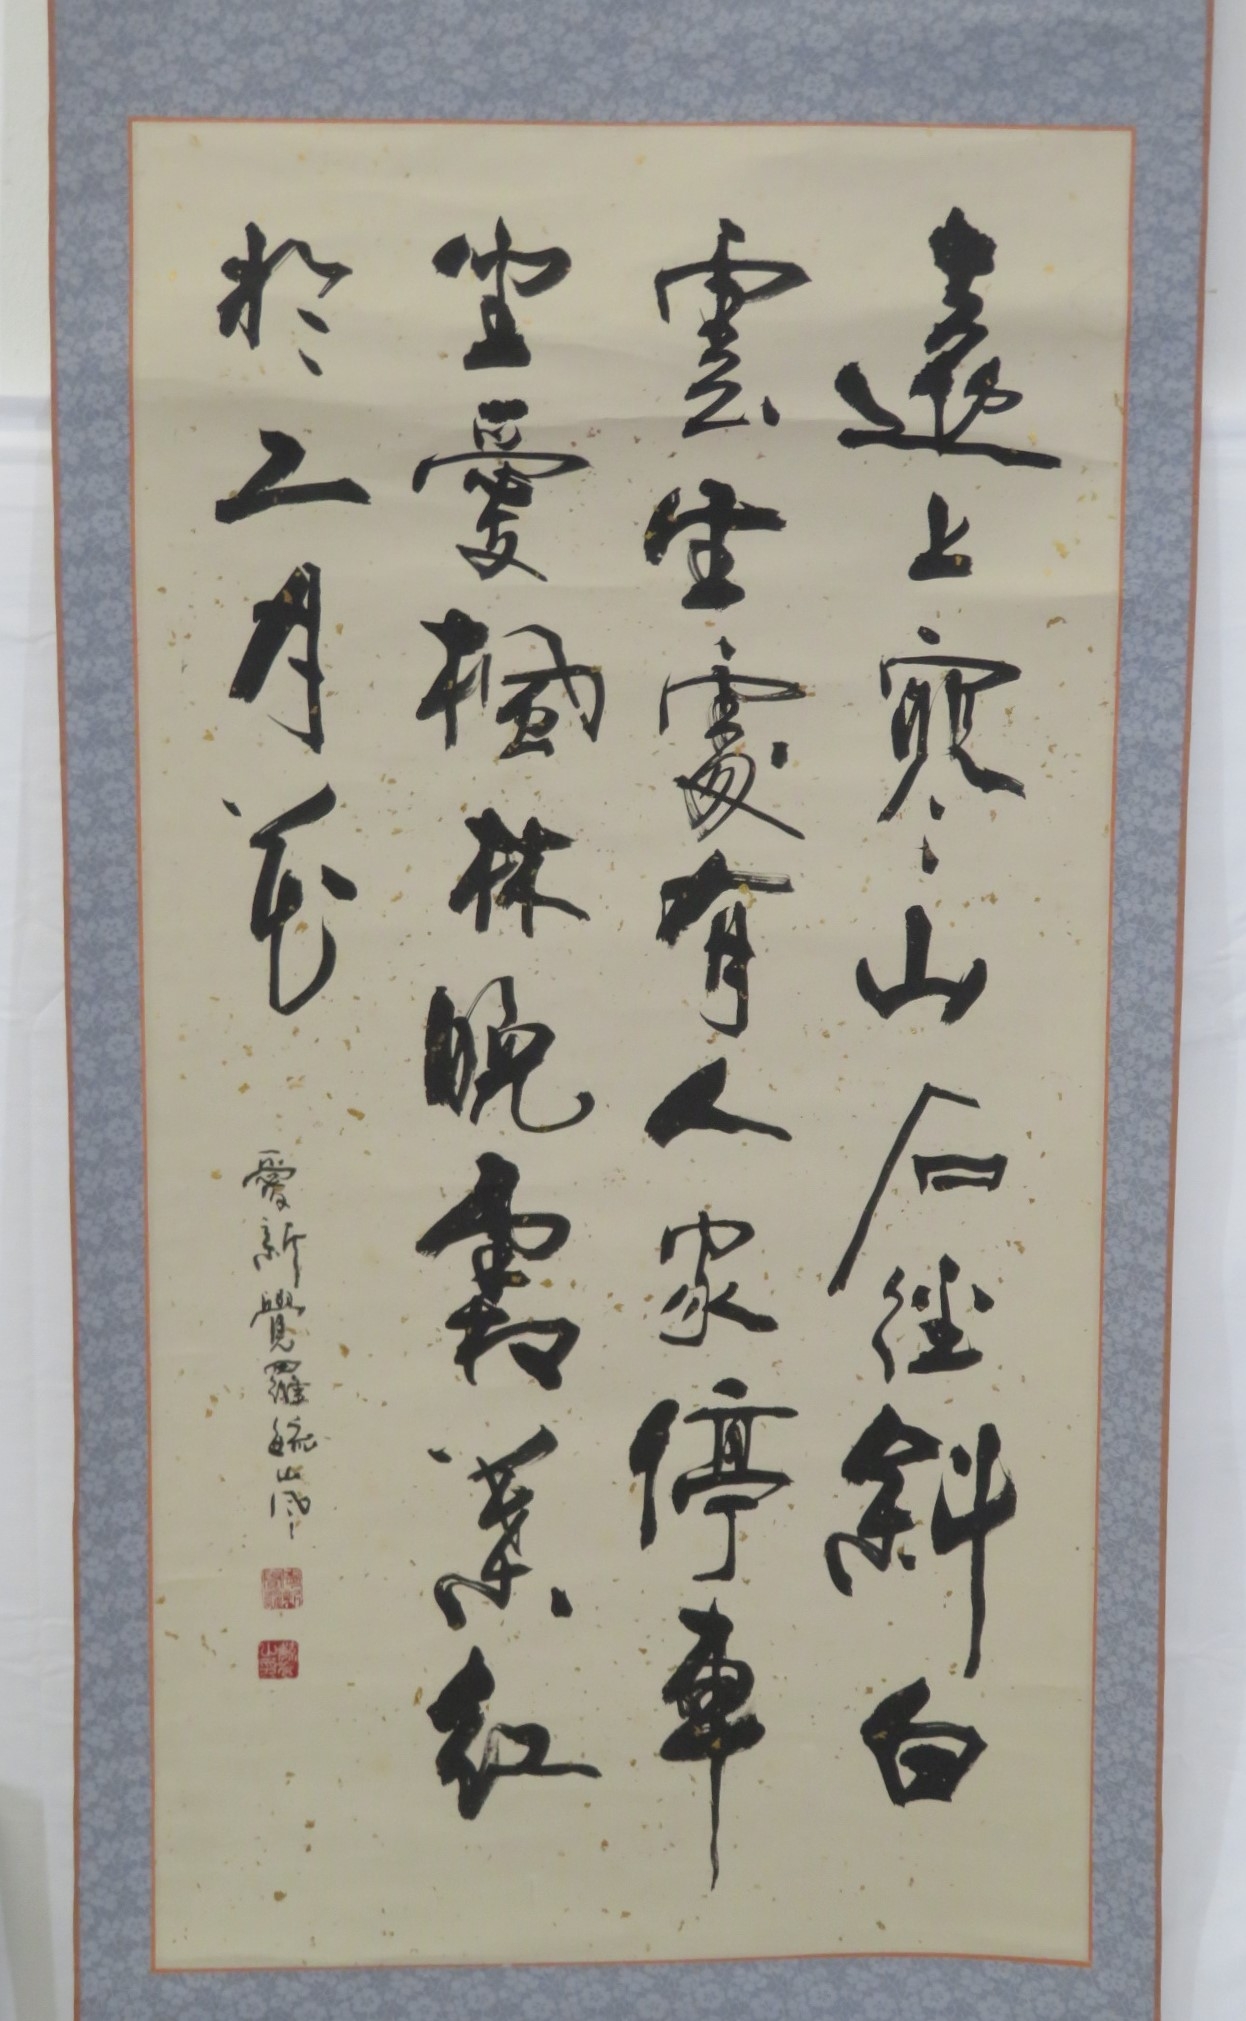 遠上寒山石径斜白
雲生處有人家停車
坐愛楓林晚霜葉紅
於二月花
愛新覺羅毓嵒